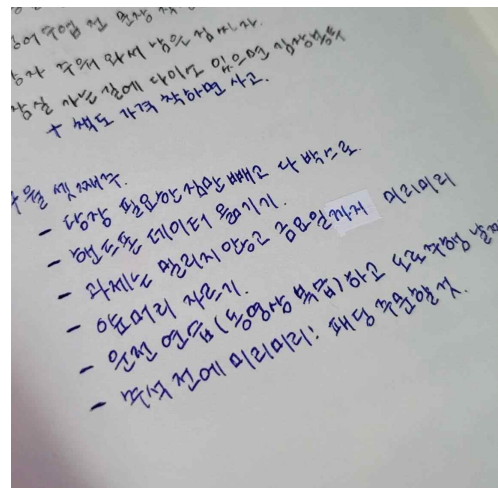 잠실 가는 길에 다이소 있으면 김장봉투
+ 책도 가격 착하면 사고.
9월 셋째주.
- 당장 필요한 짐만 빼고 다 박스로.
- 핸드폰 데이터 옮기기.
- 과제는 밀리지 않고 금요일까지 미리미리
- 앞머리 자르기.
- 운전 연습(동영상 복습)하고 도로주행 날짜
- 추석 전에 미리미리! 패딩 주문할 것.